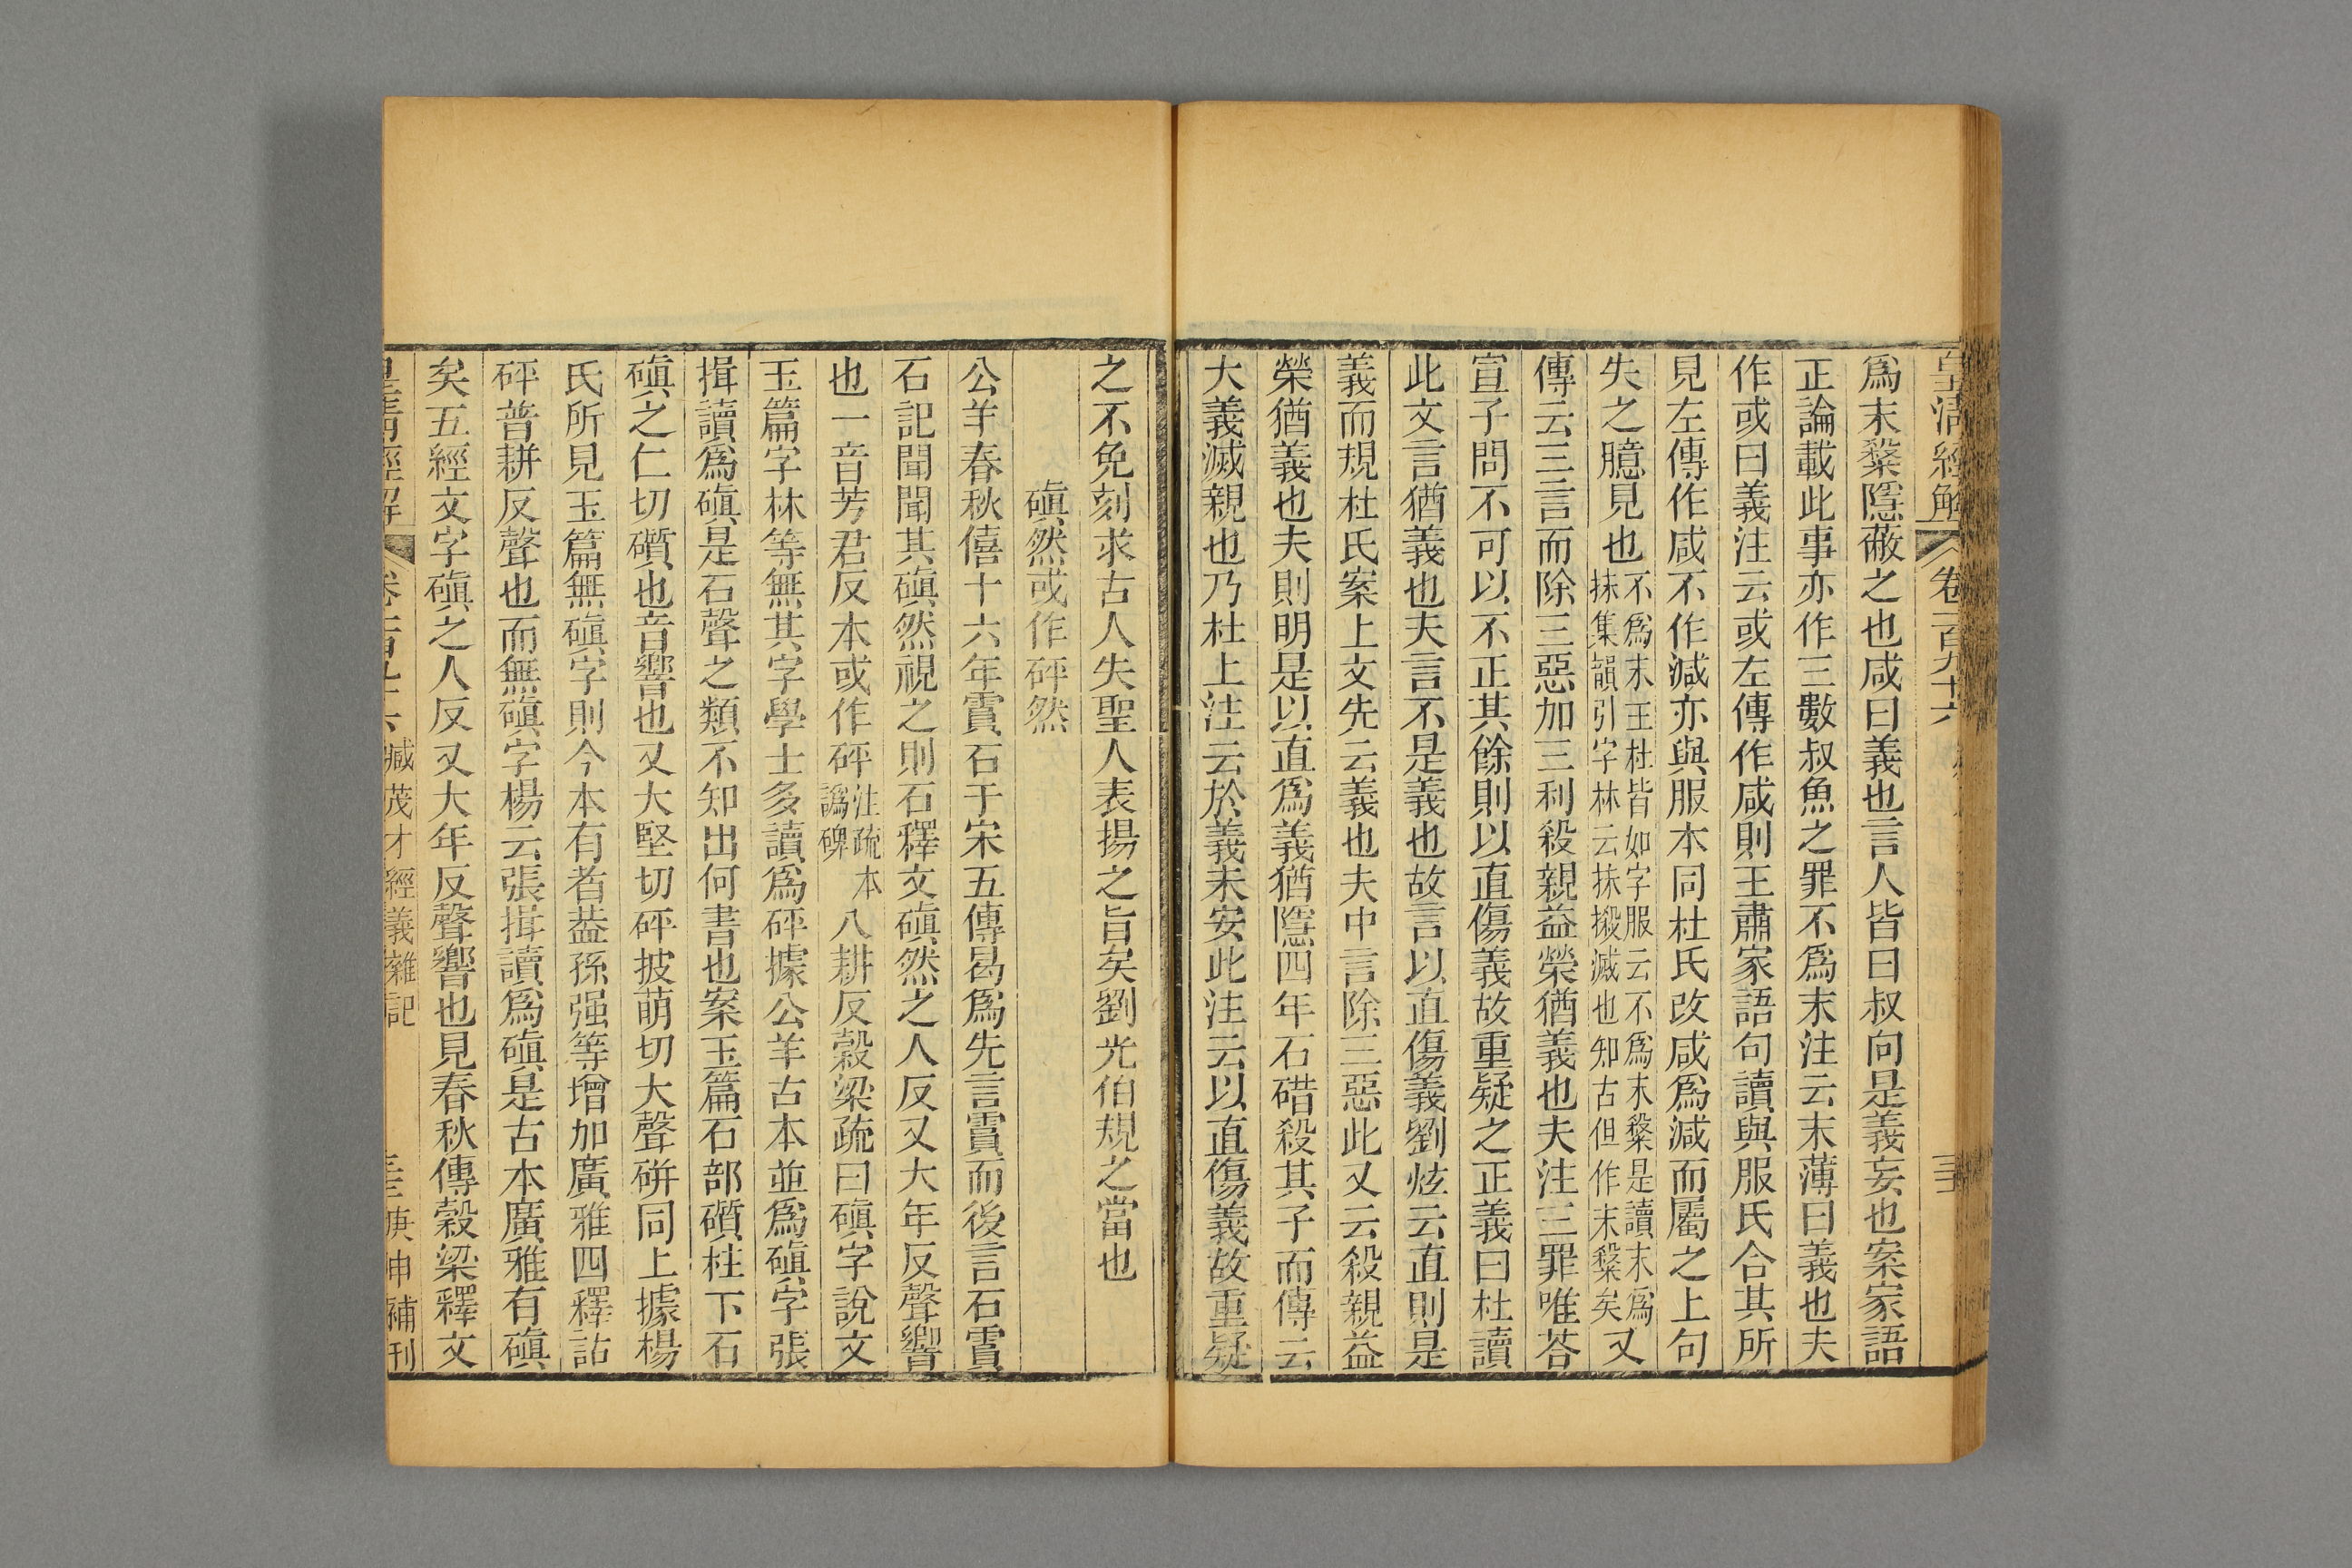 皇清經解 卷一百九十六
爲末槃隱蔽之也咸曰義也言人皆曰叔向是義妄也案家語
正論載此事亦作三數叔魚之罪不爲末注云末薄曰義也夫
作或曰義注云或左傳作咸則王肅家語句讀與服氏合其所
見左傳作咸不作減亦與服本同杜氏改咸爲減而屬之上句
失之臆見也不爲末王杜皆如字服云不爲末槃是讀末爲抹集韻引字林云抹摋滅也知古但作末槃矣又
傳云三言而除三惡加三利殺親益榮猶義也夫注三罪唯荅
宣子問不可以不正其餘則以直傷義故重疑之正義曰杜讀
此文言猶義也夫言不是義也故言以直傷義劉炫云直則是
義而規杜氏案上文先云義也夫中言除三惡此又云殺親益
榮猶義也夫則明是以直爲義猶隱四年石碏殺其子而傳云
大義滅親也乃杜上注云於義未安此注云以直傷義故重疑
之不免刻求古人失聖人表揚之旨矣劉光伯規之當也
磌然或作砰然
公羊春秋僖十六年霣石于宋五傳曷爲先言霣而後言石霣
石記聞聞其磌然視之則石釋文磌然之人反又大年反聲響
也一音芳君反本或作砰注疏本譌碑八耕反穀梁疏曰磌字說文
玉篇字林等無其字學士多讀爲砰據公羊古本並爲磌字張
揖讀爲磌是石聲之類不知出何書也案玉篇石部礩柱下石
磌之仁切礩也音響也又大堅切砰披萌切大聲硑同上據楊
氏所見玉篇無磌字則今本有者葢孫强等增加廣雅四釋詁
砰普耕反聲也而無磌字楊云張揖讀爲磌是古本廣雅有磌
矣五經文字磌之人反又大年反聲響也見春秋傳穀梁釋文
皇清經解 卷一百九十六 臧茂才經義雜記 庚申補刊